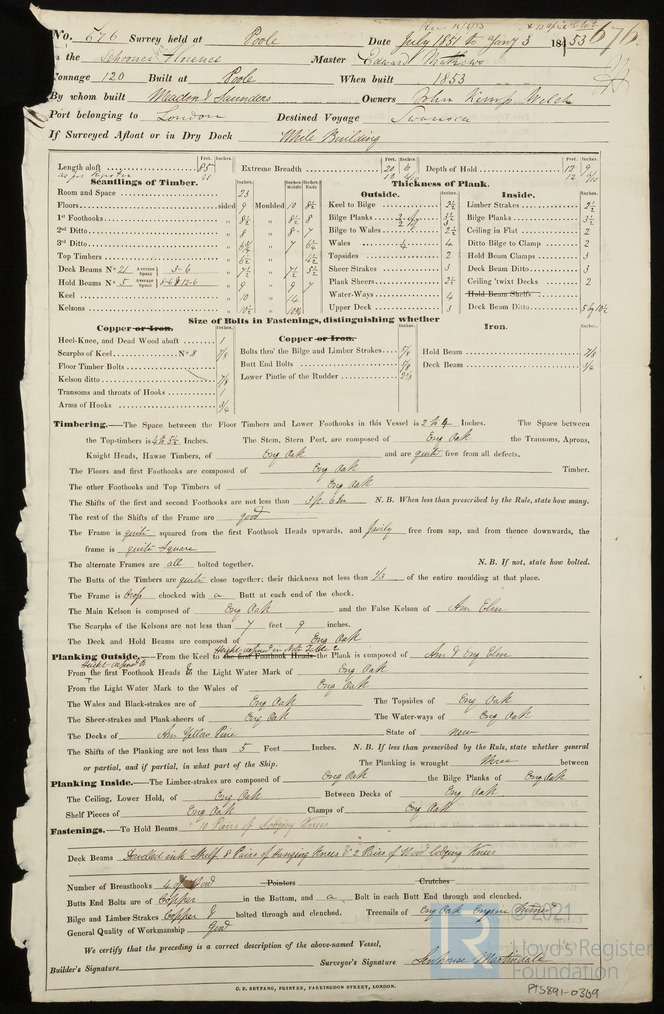 No. 576 Survey held at Poole Date July 1851 to Jany 3 1853 676
In the Schooner Florence Master Edward Mathews
Tonnage 120 Built at Poole When built 1853
By whom built Meaden & Saunders Owners John Kemp Welch
Port belonging to London Destined Voyage Swansea
If Surveyed Afloat or in Dry Dock While Building
Feet. Inches. Feet. Inches. Feet. Inches.
Length aloft 85 Extreme Breadth 20 6 Depth of Hold 12 9
as per Register
Scantlings of Timber. Thickness of Plank.
Inches. Inches Middle Inches Ends Outside. Inches. Inside. Inches.
Room and Space 23
Floors sided 9 Moulded 10 8½ Keel to Bilge 2½ Limber Strakes 2½
1st Foothooks 8½ 8 Bilge Planks Bilge Planks 3½
2nd Ditto 8 8 7 Bilge to Wales 2½ Ceiling in Flat 2
3rd Ditto 7 Wales 4 4 Ditto Bilge to Clamp 2
Top Timbers Topsides 2 Hold Beam Clamps 3
Deck Beams No 21 Average Space 3-6 7½ 7½ 5½ Sheer Strakes 3 Deck Beam Ditto 3
Hold Beams No 5 Average Space 9 9 7 Plank Sheers 2½ Ceiling 'twixt Decks 2
Keel 10 14 Water-Ways 4 Hold Beam Shelfs
Kelsons 10 Upper Deck 3 Deck Beam Ditto 5 by 10½
Size of Bolts in Fastenings, distinguishing whether
Copper or Iron. Copper or Iron. Iron.
Heel-Knee, and Dead Wood abaft 1
Scarphs of Keel No 8 7/8 Bolts thro' the Bilge and Limber Strakes 5/8 Hold Beam 7/8
Floor Timber Bolts Butt End Bolts 5/8 Deck Beam 3/4
Kelson ditto 7/8 Lower Pintle of the Rudder
Transoms and throats of Hooks 1
Arms of Hooks 3/4
Timbering.—The Space between the Floor Timbers and Lower Foothooks in this Vessel is 2 to 4 Inches. The Space between
the Top-timbers is 4 to 5½ Inches. The Stem, Stern Post, are composed of Eng Oak the Transoms, Aprons,
Knight Heads, Hawse Timbers, of Eng Oak and are quite free from all defects.
The Floors and first Foothooks are composed of Eng Oak Timber.
The other Foothooks and Top Timbers of Eng Oak
The Shifts of the first and second Foothooks are not less than 3ft. 6in N. B. When less than prescribed by the Rule, state how many.
The rest of the Shifts of the Frame are good
The Frame is quite squared from the first Foothook Heads upwards, and fairly free from sap, and from thence downwards, the
frame is quite square
The alternate Frames are all bolted together. N. B. If not, state how bolted.
The Butts of the Timbers are quite close together; their thickness not less than 1/3 of the entire moulding at that place.
The Frame is chocked with a Butt at each end of the chock.
The Main Kelson is composed of Eng Oak and the False Kelson of Am Elm
The Scarphs of the Kelsons are not less than 7 feet 9 inches.
The Deck and Hold Beams are composed of Eng Oak
Height defined in Note Table 2
Planking Outside.—From the Keel to the first Foothook Heads the Plank is composed of Am & Eng Elm
Height defined to
From the first Foothook Heads to the Light Water Mark of Eng Oak
From the Light Water Mark to the Wales of Eng Oak
The Wales and Black-strakes are of Eng Oak The Topsides of Eng Oak
The Sheer-strakes and Plank-sheers of Eng Oak The Water-ways of Eng Oak
The Decks of Am Yellow Pine State of new
The Shifts of the Planking are not less than 5 Feet Inches. N. B. If less than prescribed by the Rule, state whether general
or partial, and if partial, in what part of the Ship. The Planking is wrought three between
Planking Inside.—The Limber-strakes are composed of Eng Oak the Bilge Planks of Eng Oak
The Ceiling, Lower Hold, of Eng Oak Between Decks of Eng Oak
Shelf Pieces of Eng Oak Clamps of Eng Oak
Fastenings.—To Hold Beams 10 Pairs of Lodging Knees
Deck Beams Dovelled into Shelf 8 Pairs of Hanging Knees & 2 Pairs of Wood Lodging Knees
Number of Breasthooks 4 of Wood Pointers Crutches
Butts End Bolts are of Copper in the Bottom, and a Bolt in each Butt End through and clenched.
Bilge and Limber Strakes Copper & bolted through and clenched. Treenails of Eng Oak Engine Turned
General Quality of Workmanship Good
We certify that the preceding is a correct description of the above-named Vessel,
Builder's Signature Surveyor's Signature Senhouse Martindale
C. F. SEYFANG, PRINTER, FARRINGDON STREET, LONDON.
LR
© 2021
Lloyd's Register
Foundation
PTS891-0369